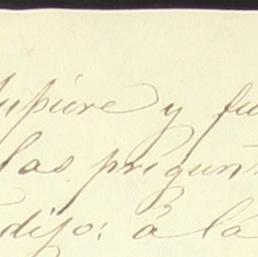 supiere y fu
las pregun
dijo: á la